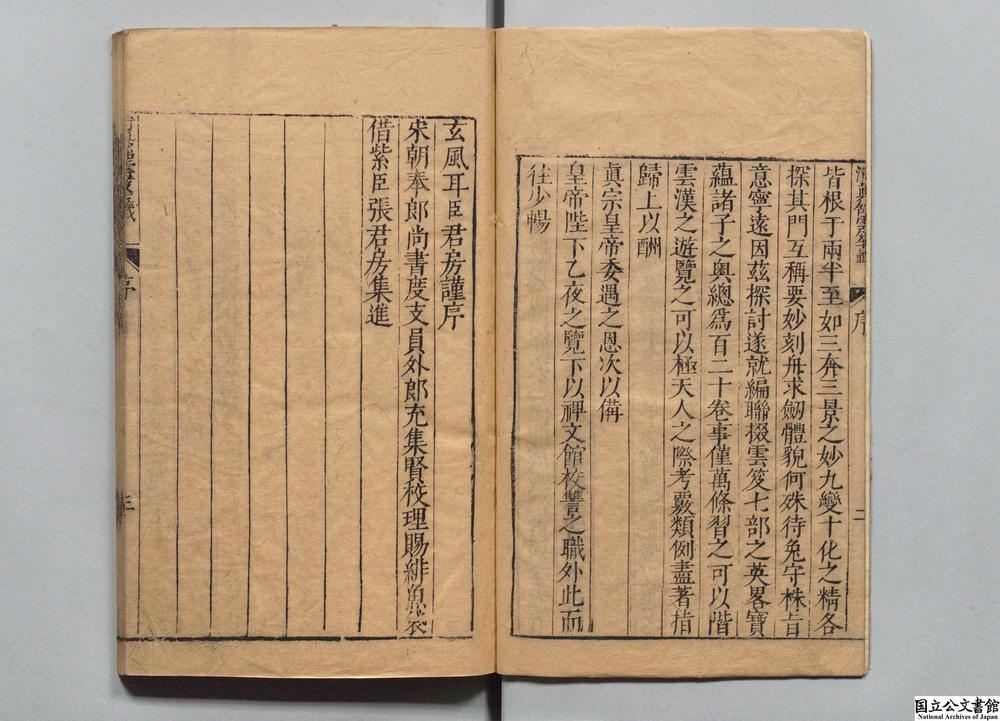 皆根于兩半至如三奔三景之妙九變十化之精各
探其門互稱要妙刻舟求劒體貌何殊待兔守株旨
意寧遠因茲探討遂就編聯掇雲笈七部之英畧寶
蘊諸子之奥總爲百二十卷事僅萬條習之可以階
雲漢之遊覽之可以極天人之際考覈類例盡著指
歸上以酬
眞宗皇帝委遇之恩次以備
皇帝陛下乙夜之覽下以裨文館校讐之職外此而
往少暢
序
二
玄風耳臣君房謹序
宋朝奉郎尚書度支員外郎充集賢校理賜緋魚袋
借紫臣張君房集進
序
三
国立公文書館
National Archives of Japan